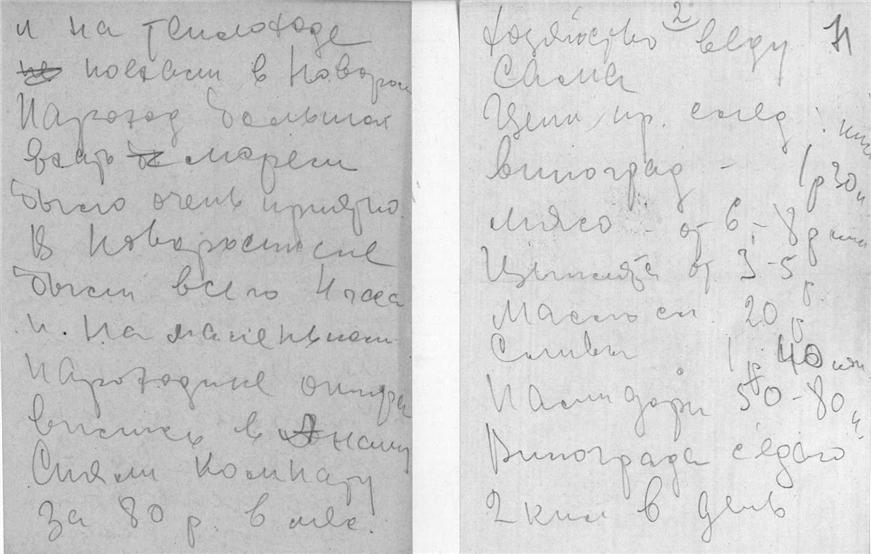 и на теплоходе
поехали в Новорос
Пароход большой
ехать морем
было очень приятно.
В Новороссийске
были всего 4 часа
и на маленьком
пароходике отпра
вились в Анапу
Сняли комнату
за 80 р. в мес.
2
хозяйство веду
сама
Цены пр. след:
виноград - 1р 30к
мясо - от 6-8р кил
Цыплята от 3-5 р.
Масло сл. 20 р
Сливы 1р. 40 коп
Памидоры 50-80 к.
Винограда съедаю
2 кил в день